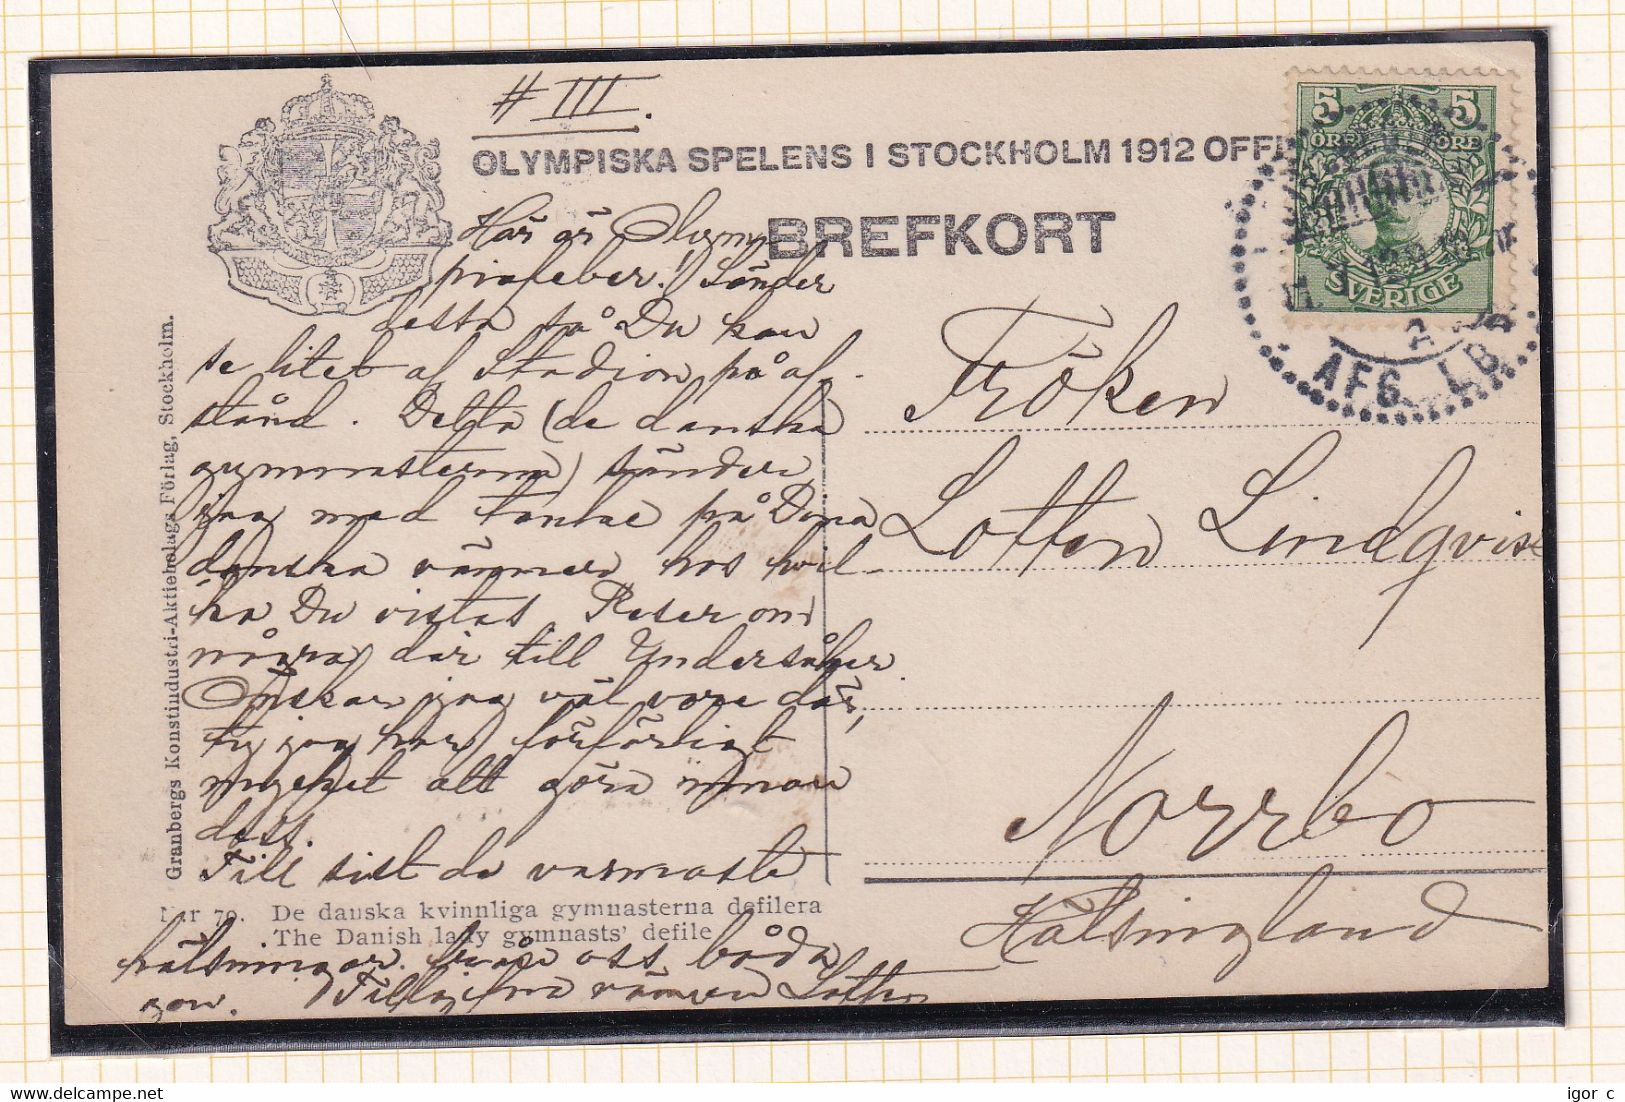 # III.
OLYMPISKA SPELENS I STOCKHOLM 1912 OFFI
BREFKORT
5 5
ÖRE ÖRE
SVERIGE
AFG. LBR
Här är Olym
piafeber! Sänder
detta så Du kan
se litet af Stadion på af-
stånd. Detta (de danska
gymnasterna) sänder
jag med tanke på Dina
danska vänner hos hvil-
ka Du vistas. Reser om
några dar till Undersåker.
Önskar jag väl vore där,
ty jag har förfärligt
mycket att göra innan
dess.
Till sist de varmaste
hälsningar från oss båda
Tillgifna vännen Lotten
Fröken
Lotten Lindqvist
Norrbo
Hälsingland
Nr 70. De danska kvinnliga gymnasterna defilera
The Danish lady gymnasts' defile
Granbergs Konstindustri-Aktiebolags Förlag, Stockholm.
igor c